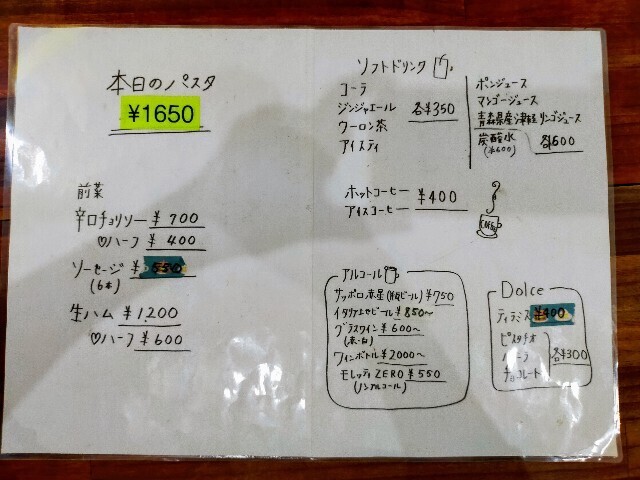 本日のパスタ
¥1650
前菜
辛口チョリソー ¥700
♡ハーフ ¥400
ソーセージ ¥550
(6本)
生ハム ¥1,200
♡ハーフ ¥600
ソフトドリンク
コーラ
ジンジャエール 各¥350
ウーロン茶
アイスティ
ポンジュース
マンゴージュース
青森県産津軽リンゴジュース
炭酸水 各¥600
(¥600)
ホットコーヒー ¥400
アイスコーヒー
COFFEE
アルコール
サッポロ赤星(瓶ビール) ¥750
イタリアビール ¥850〜
グラスワイン ¥600〜
(赤・白)
ワインボトル ¥2000〜
モレッティZERO ¥550
(ノンアルコール)
Dolce
ティラミス ¥400
ピスタチオ
各¥300
チョコレート